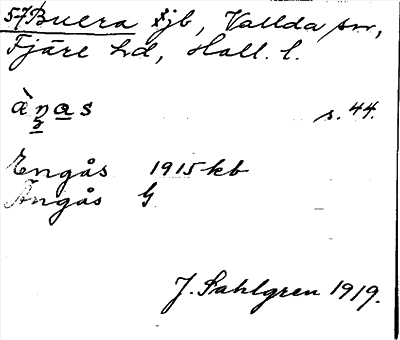 57 Buera sjb, Vallda sn,
Fjäre hd, Hall. l.
àŋas s. 44.
Engås 1915 kb
Ängås G
J. Sahlgren 1919.